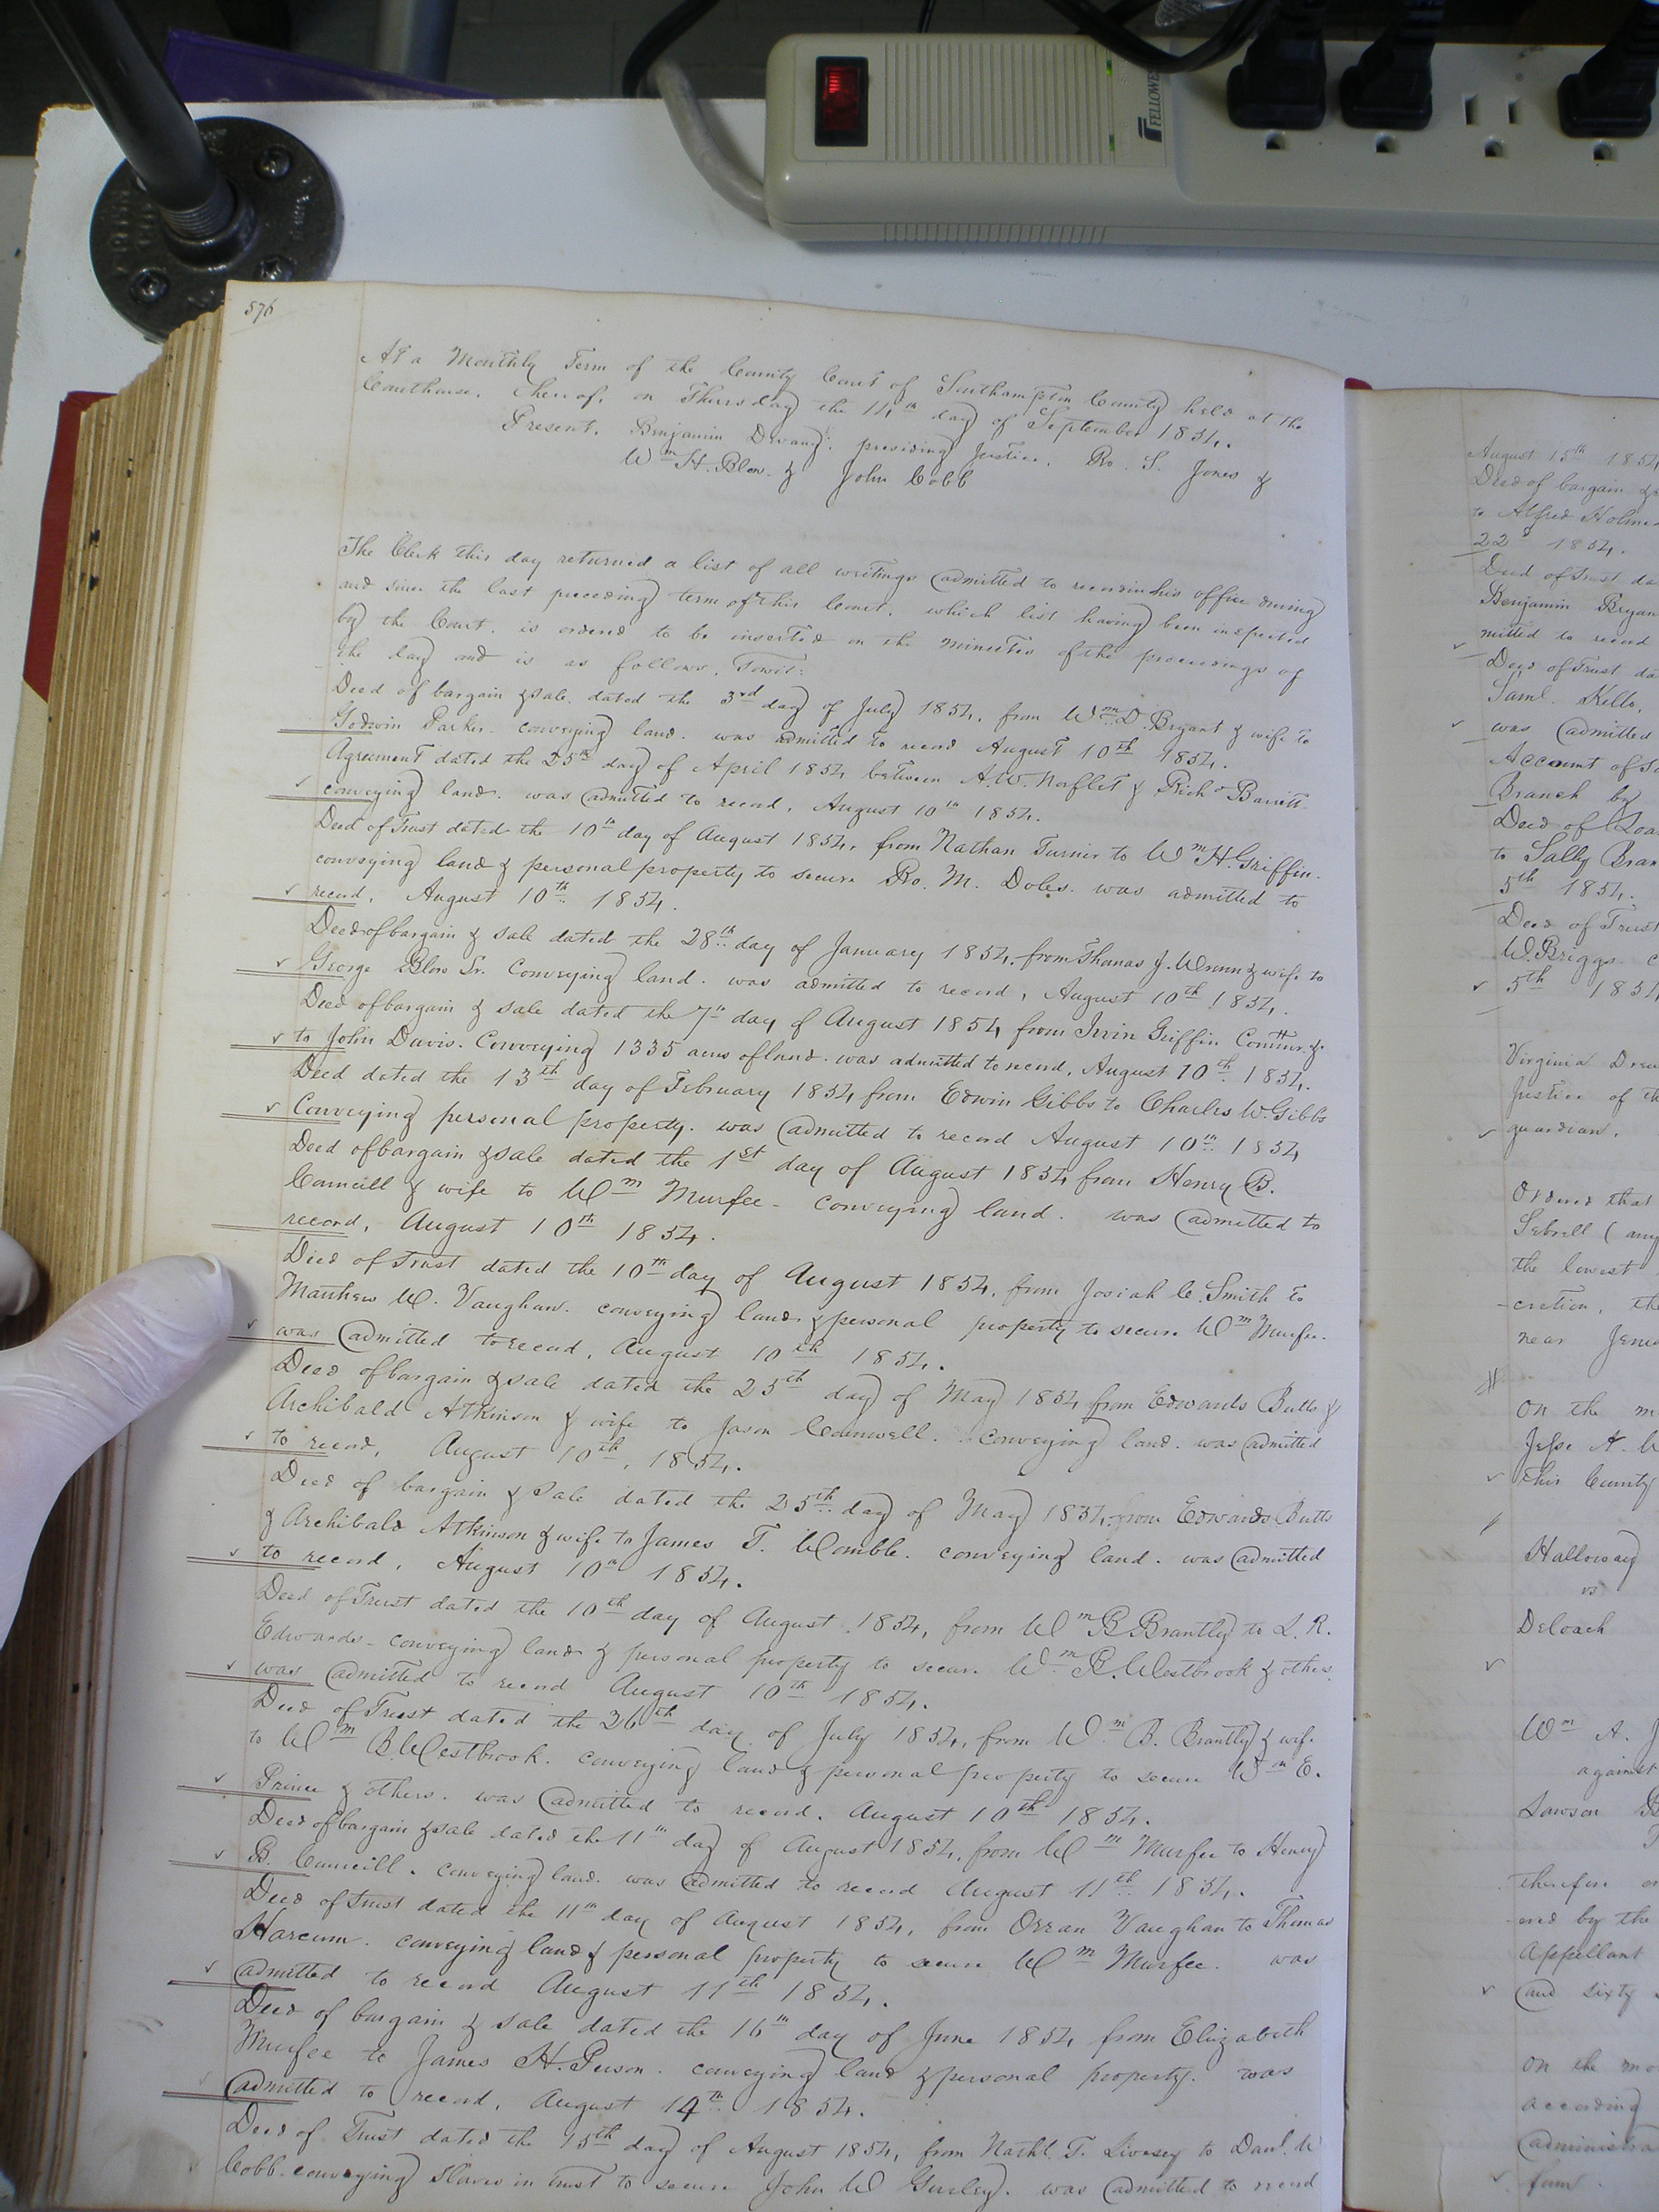 FELLOWE
576
At a Monthly Term of the County Court of Southampton County held at the
Courthouse, thereof, on Thursday the 14th day of September 1854.
Present. Benjamin Devany. presiding Justice. Ro. S. Jones &
Wm H. Blow. & John Cobb
The Clerk this day returned a list of all writings admitted to record in his office during
and since the last preceding term of this Court, which list having been inspected
by the Court, is ordered to be inserted on the minutes of the proceedings of
the day and is as follows, Towit:
Deed of bargain & sale. dated the 3rd day of July 1854, from Wm D. Bryant & wife to
Godwin Parker. conveying land. was admitted to record August 10th 1854.
Agreement dated the 25th day of April 1854 between A. W. Norflet & Richd Barrett
conveying land. was admitted to record, August 10th 1854.
Deed of Trust dated the 10th day of August 1854, from Nathan Turner to Wm H. Griffin.
conveying land & personal property to secure Ro. M. Doles. was admitted to
record, August 10th 1854.
Deed of bargain & sale dated the 28th day of January 1854, from Thomas J. Wrenn & wife to
George Blow Sr. Conveying land. was admitted to record, August 10th 1854.
Deed of bargain & sale dated the 7th day of August 1854 from Irvin Griffin Commr. &c
to John Davis. Conveying 1335 acres of land. was admitted to record, August 10th 1854.
Deed dated the 13th day of February 1854 from Edwin Gibbs to Charles W. Gibbs
Conveying personal property. was admitted to record August 10th 1854
Deed of bargain & sale dated the 1st day of August 1854 from Henry B.
Councill & wife to Wm Murfee - conveying land. was admitted to
record, August 10th 1854.
Deed of Trust dated the 10th day of August 1854, from Josiah C. Smith to
Matthew W. Vaughan. conveying land & personal property to secure Wm Murfee.
was admitted to record, August 10th 1854.
Deed of bargain & sale dated the 25th day of May 1854 from Edwards Butts &
Archibald Atkinson & wife to Jason Cornwell. conveying land. was admitted
to record, August 10th, 1854.
Deed of bargain & sale dated the 25th day of May 1854 from Edwards Butts
& Archibald Atkinson & wife to James T. Womble. conveying land. was admitted
to record, August 10th 1854.
Deed of Trust dated the 10th day of August 1854, from Wm B. Brantly to L. R.
Edwards - conveying land & personal property to secure Wm B. Westbrook & others.
was admitted to record August 10th 1854.
Deed of Trust dated the 26th day of July 1854, from Wm B. Brantly & wife
to Wm B. Westbrook. conveying land & personal property to secure Wm E.
Prince & others. was admitted to record. August 10th 1854.
Deed of bargain & sale dated the 11th day of August 1854, from Wm Murfee to Henry
B. Councill. conveying land. was admitted to record August 11th 1854.
Deed of Trust dated the 11th day of August 1854, from Orran Vaughan to Thomas
Harcum. conveying land & personal property to secure Wm Murfee. was
admitted to record August 11th 1854.
Deed of bargain & sale dated the 16th day of June 1854 from Elizabeth
Murfee to James H. Person. conveying land & personal property. was
admitted to record, August 14th 1854.
Deed of Trust dated the 15th day of August 1854, from Nathl. T. Livesey to Danl. W
Cobb. conveying slaves in trust to secure John W Gurley. was admitted to record
August 15th 1854
Deed of bargain &
to Alfred Holme
22d 1854.
Deed of Trust da
Benjamin Bryan
mitted to record
Deed of Trust da
Saml. Kello,
was admitted
Account of
Branch by
Deed of Loa
to Sally Bran
5th 1854.
Deed of Trust
W. Briggs c
5th 185
Virginia Drew
Justice of th
guardian.
Ordered that
Sebrell (any
the lowest
-cretion, the
near Jeru
On the m
Jesse A.
this County
Halloway
vs
Deloach
Wm A. J
against
Lawson B
therefore
ered by the
Appellant
and sixty
On the mo
according
administra
form.